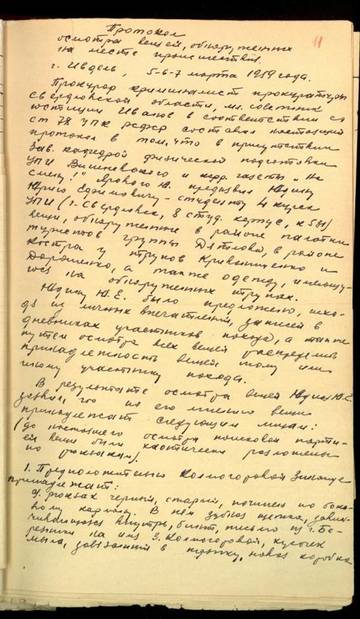 11
Протокол
осмотра вещей, обнаруженных
на месте происшествия.
г. Ивдель, 5-6-7 марта 1959 года.
Прокурор криминалист прокуратуры
Свердловской области, мл. советник
юстиции Иванов в соответствии со
ст 78 УПК РСФСР составил настоящий
протокол в том, что в присутствии
зав. кафедрой физической подготовки
УПИ Вишневского и корр. газеты "На
смену!" Ярового Ю. предъявил Юдину
Юрию Ефимовичу - студенту 4 курса
УПИ (г. Свердловск, 8 студ. корпус, к 531)
вещи, обнаруженные в районе палатки
туристов группы Дятлова, в районе
костра у трупов Кривонищенко и
Дорошенко, а также одежду, имевшую-
ся на обнаруженных трупах.
Юдину Ю.Е. было предложено, исхо-
дя из личных впечатлений, записей в
дневниках участников похода, а также
путем осмотра всех вещей распределить
принадлежность вещей тому или
иному участнику похода.
В результате осмотра вещей Юдин Ю.Е.
заявил, что по его мнению вещи
принадлежат следующим лицам:
(до настоящего осмотра поисковой парти-
ей вещи были хаотически разложены
по рюкзакам).
1. Предположительно Колмогоровой Зинаиде
принадлежат:
а) рюкзак черный, старый, починен по боко-
вому карману. В нем зубная щетка,
внутрь, бинт, письмо из г. Бе-
резники на имя З. Колмогоровой, кусочек
мыла, завязанный в тряпку, новая коробка